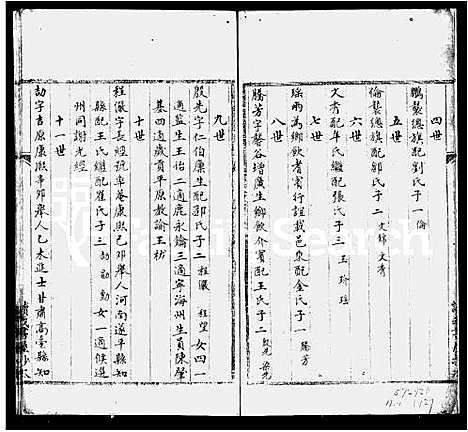 四世
鵬襲總旗配劉氏子一倫
五世
倫襲總旗配郭氏子二文錦 文秀
六世
文秀配牟氏繼配張氏子三玉 珍 瑶
七世
瑶雨為鄉飲耆賓行誼載邑乘配金氏子一騰芳
八世
騰芳字馨谷增廣生鄉飲介賓配王氏子二殷先 榮先
九世
殷先字仁伯廩生配郭氏子二程儼 程望 女四一
適監生王 二適鹿永 三適寧海州生員陳肇
基四適歲貢平原教諭王枋
十世
程儼字長經號率庵康熙己卯舉人河南遂平縣知
縣配王氏繼配崔氏子三劼 勷 勳 女一適候選
州同謝允經
十一世
劼字吉原康熙辛卯舉人乙未進士甘肅高臺縣知